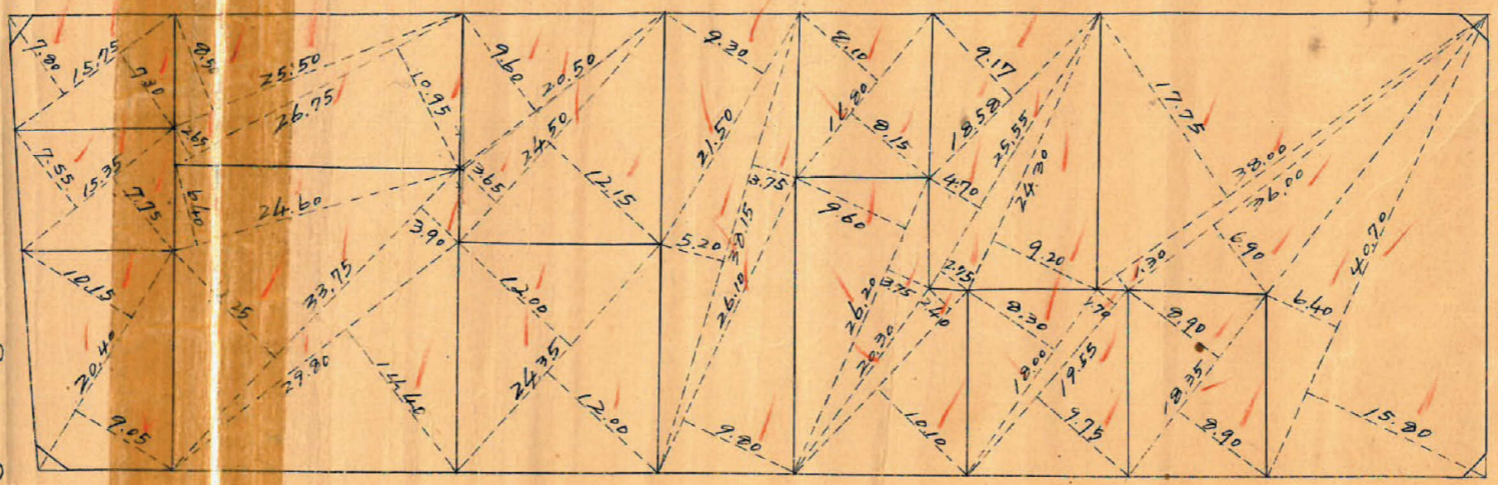 7.80
15.75
7.30
8.50
25.50
26.75
10.95
2.65
7.55
15.35
7.75
6.40
24.60
10.15
20.40
9.05
33.75
29.80
3.90
14.40
9.60
20.50
24.50
3.65
12.15
12.00
24.35
12.00
9.30
21.50
3.75
38.15
5.20
26.10
9.80
8.10
16.80
8.15
9.60
26.20
3.75
20.30
2.40
2.75
10.10
9.17
18.58
25.55
24.30
4.70
9.20
8.30
18.00
19.55
9.75
1.30
17.75
38.00
36.00
6.90
40.70
6.40
8.90
18.35
8.90
15.80